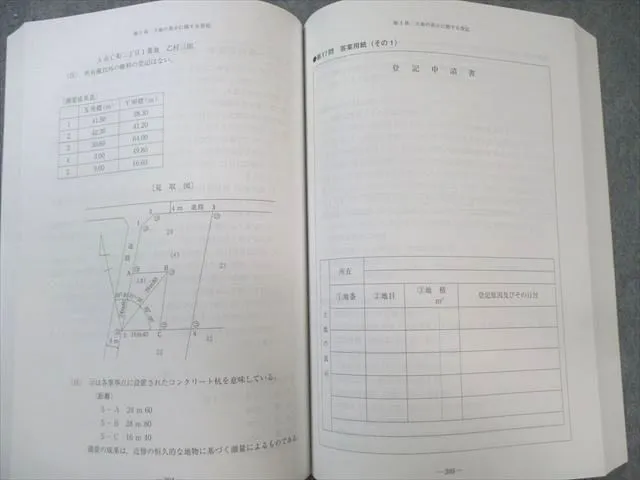 第2章 土地の表示に関する登記
A市C町二丁目1番地 乙村三郎
所有権以外の権利の登記はない。
〔測量成果表〕
X座標(m) Y座標(m)
1 41.50 38.30
2 42.20 41.20
3 64.00
4 3.00 49.80
5 5.00 16.60
〔見取図〕
4 m 道路
3
A
B
5 C 4
☑は各筆界点に設置されたコンクリート杭を意味している。
〔距離〕
5 − A 24 m 60
5 − B 28 m 80
5 − C 16 m 40
測量の成果は、近傍の恒久的な地物に基づく測量によるものである
第2章 土地の表示に関する登記
●第17問 答案用紙(その1)
登記申請書
所在
①地番 ②地目 ③地積 m² 登記原因及びその日付
土地の表示